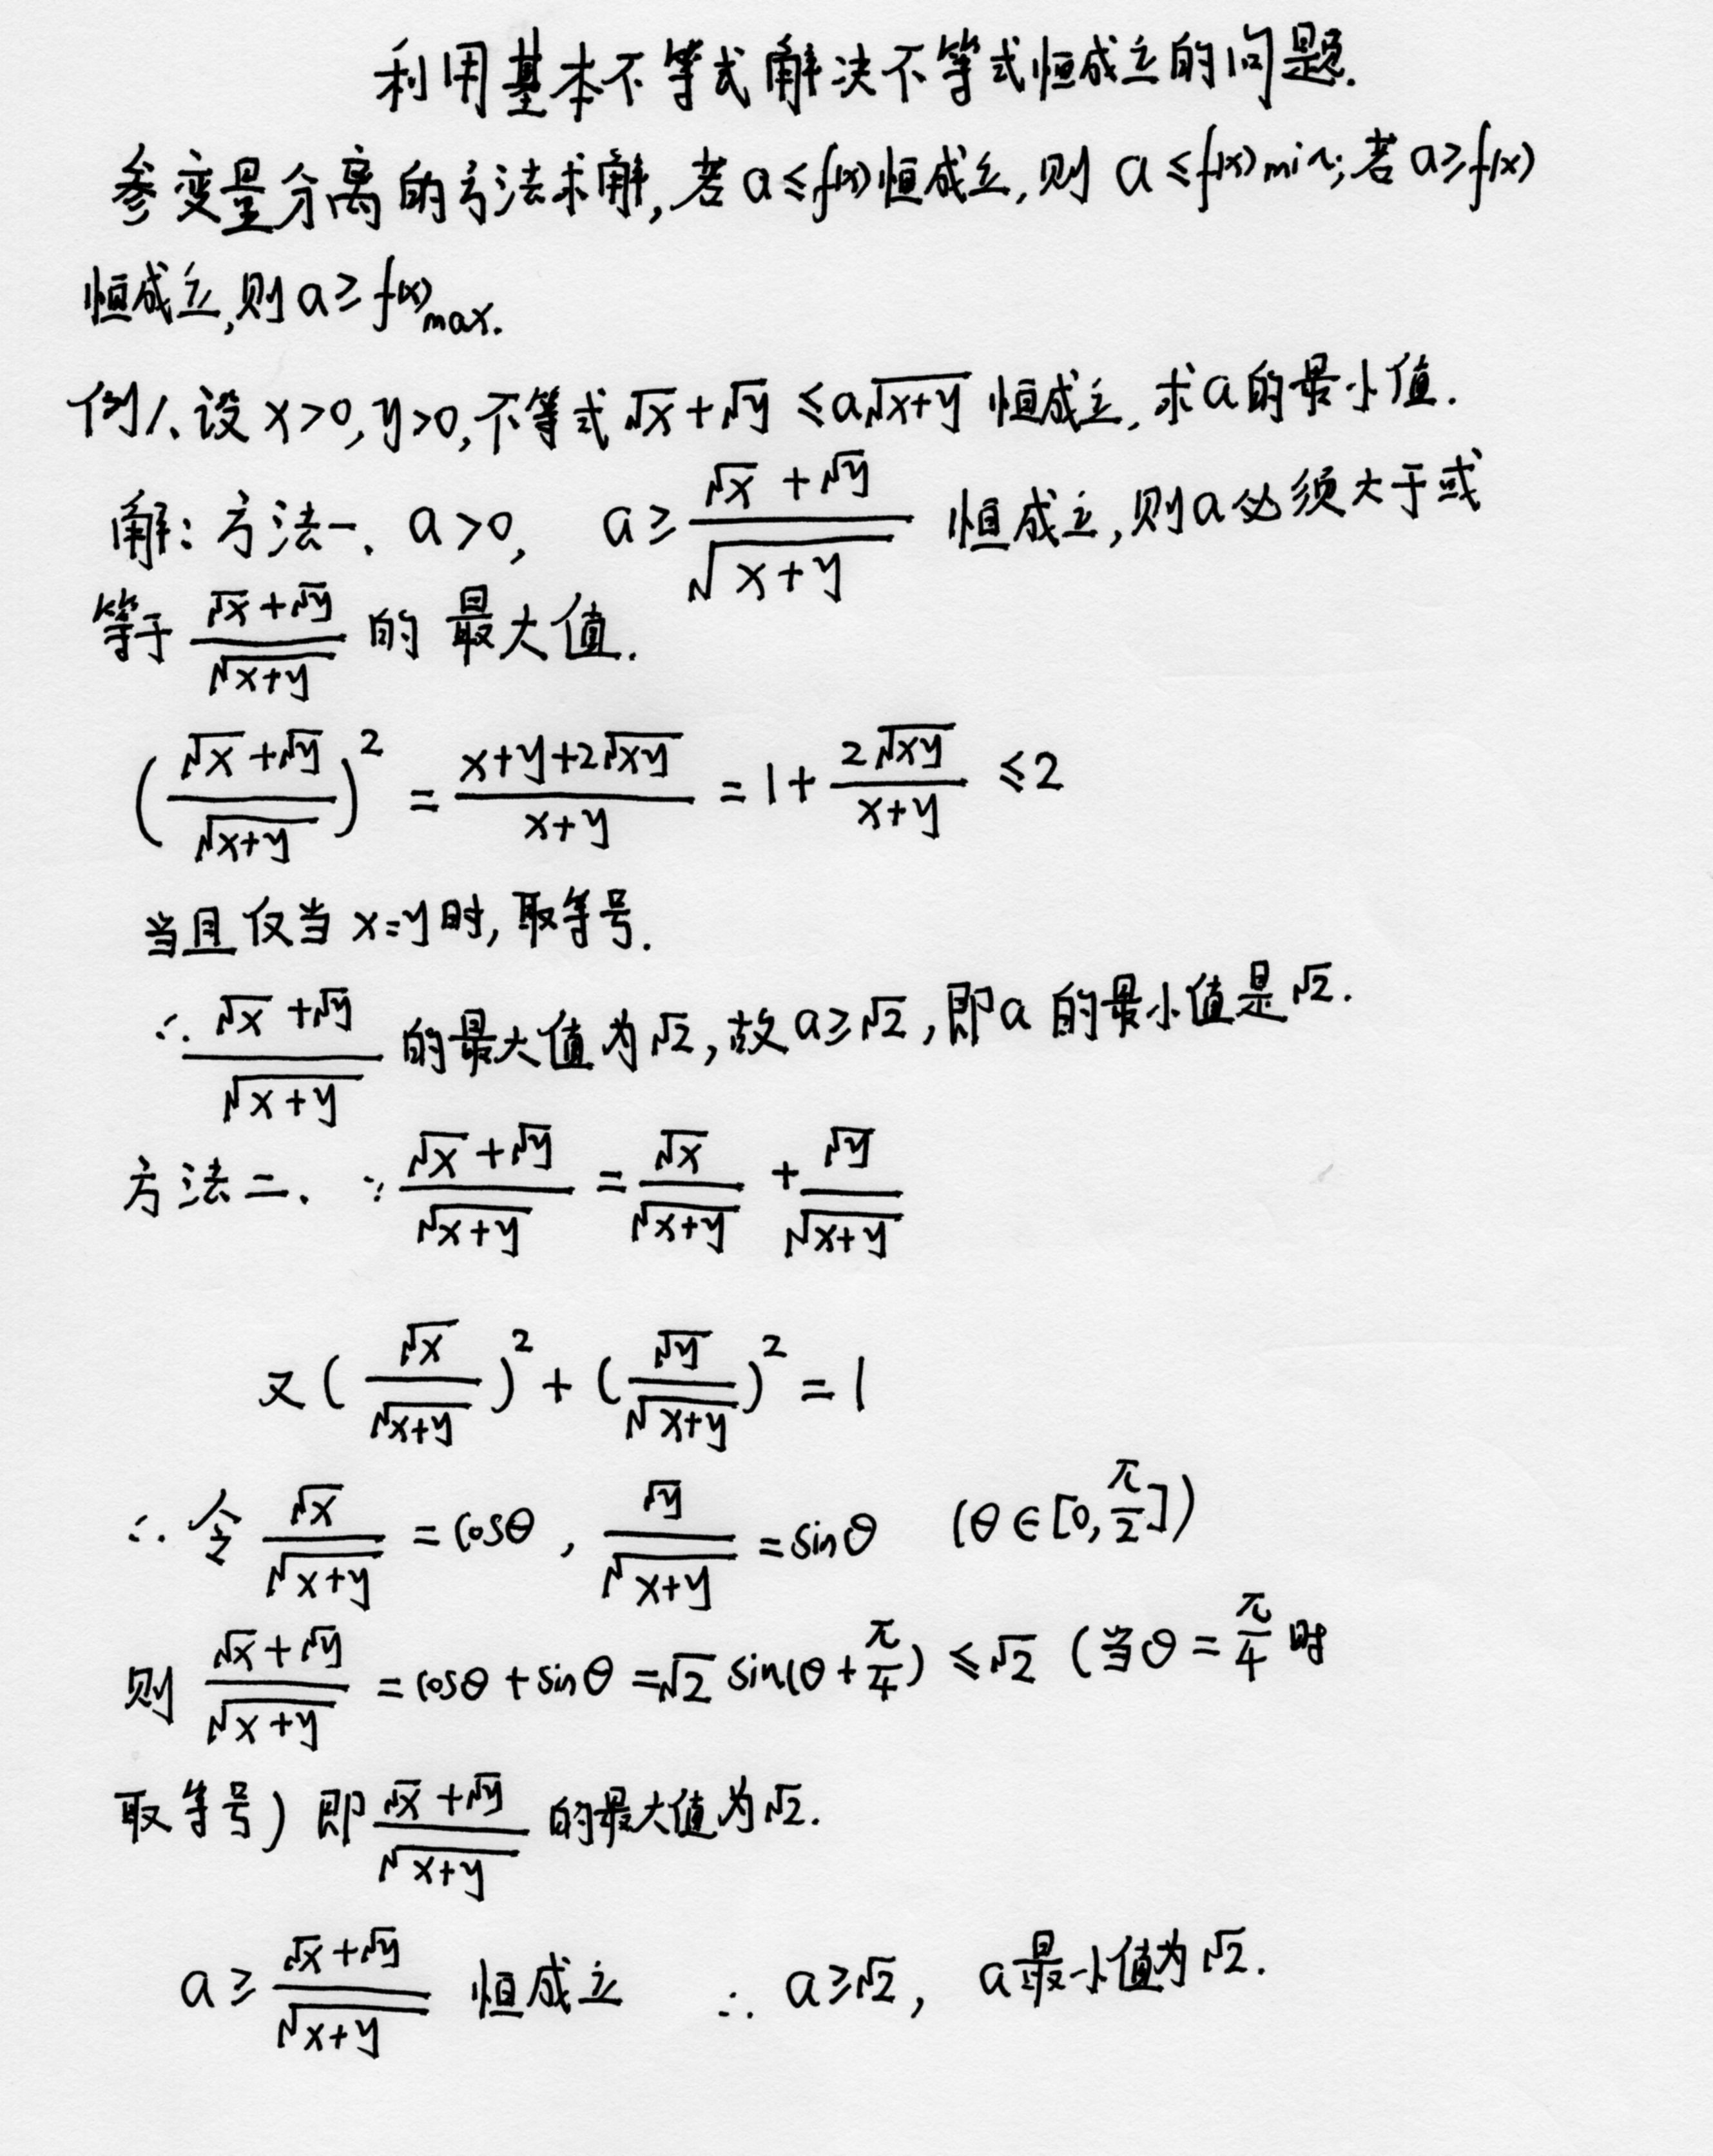 利用基本不等式解决不等式恒成立的问题.
参变量分离的方法求解,若a≤f(x)恒成立,则 a≤f(x)min;若a≥f(x)
恒成立,则a≥f(x)max.
例1、设x>0,y>0,不等式√x+√y ≤a√(x+y) 恒成立,求a的最小值.
解:方法一、a>0, a≥(√x+√y)/√(x+y) 恒成立,则a必须大于或
等于(√x+√y)/√(x+y)的最大值.
((√x+√y)/√(x+y))² = (x+y+2√(xy))/(x+y) = 1+(2√(xy))/(x+y) ≤2
当且仅当x=y时,取等号.
∴(√x+√y)/√(x+y)的最大值为√2,故a≥√2,即a的最小值是√2.
方法二、∵(√x+√y)/√(x+y) = √x/√(x+y) + √y/√(x+y)
又(√x/√(x+y))²+(√y/√(x+y))²=1
∴令√x/√(x+y)=cosθ, √y/√(x+y)=sinθ (θ∈[0,π/2])
则(√x+√y)/√(x+y)=cosθ+sinθ=√2 sin(θ+π/4)≤√2 (当θ=π/4时
取等号)即(√x+√y)/√(x+y)的最大值为√2.
a≥(√x+√y)/√(x+y) 恒成立 ∴a≥√2, a最小值为√2.